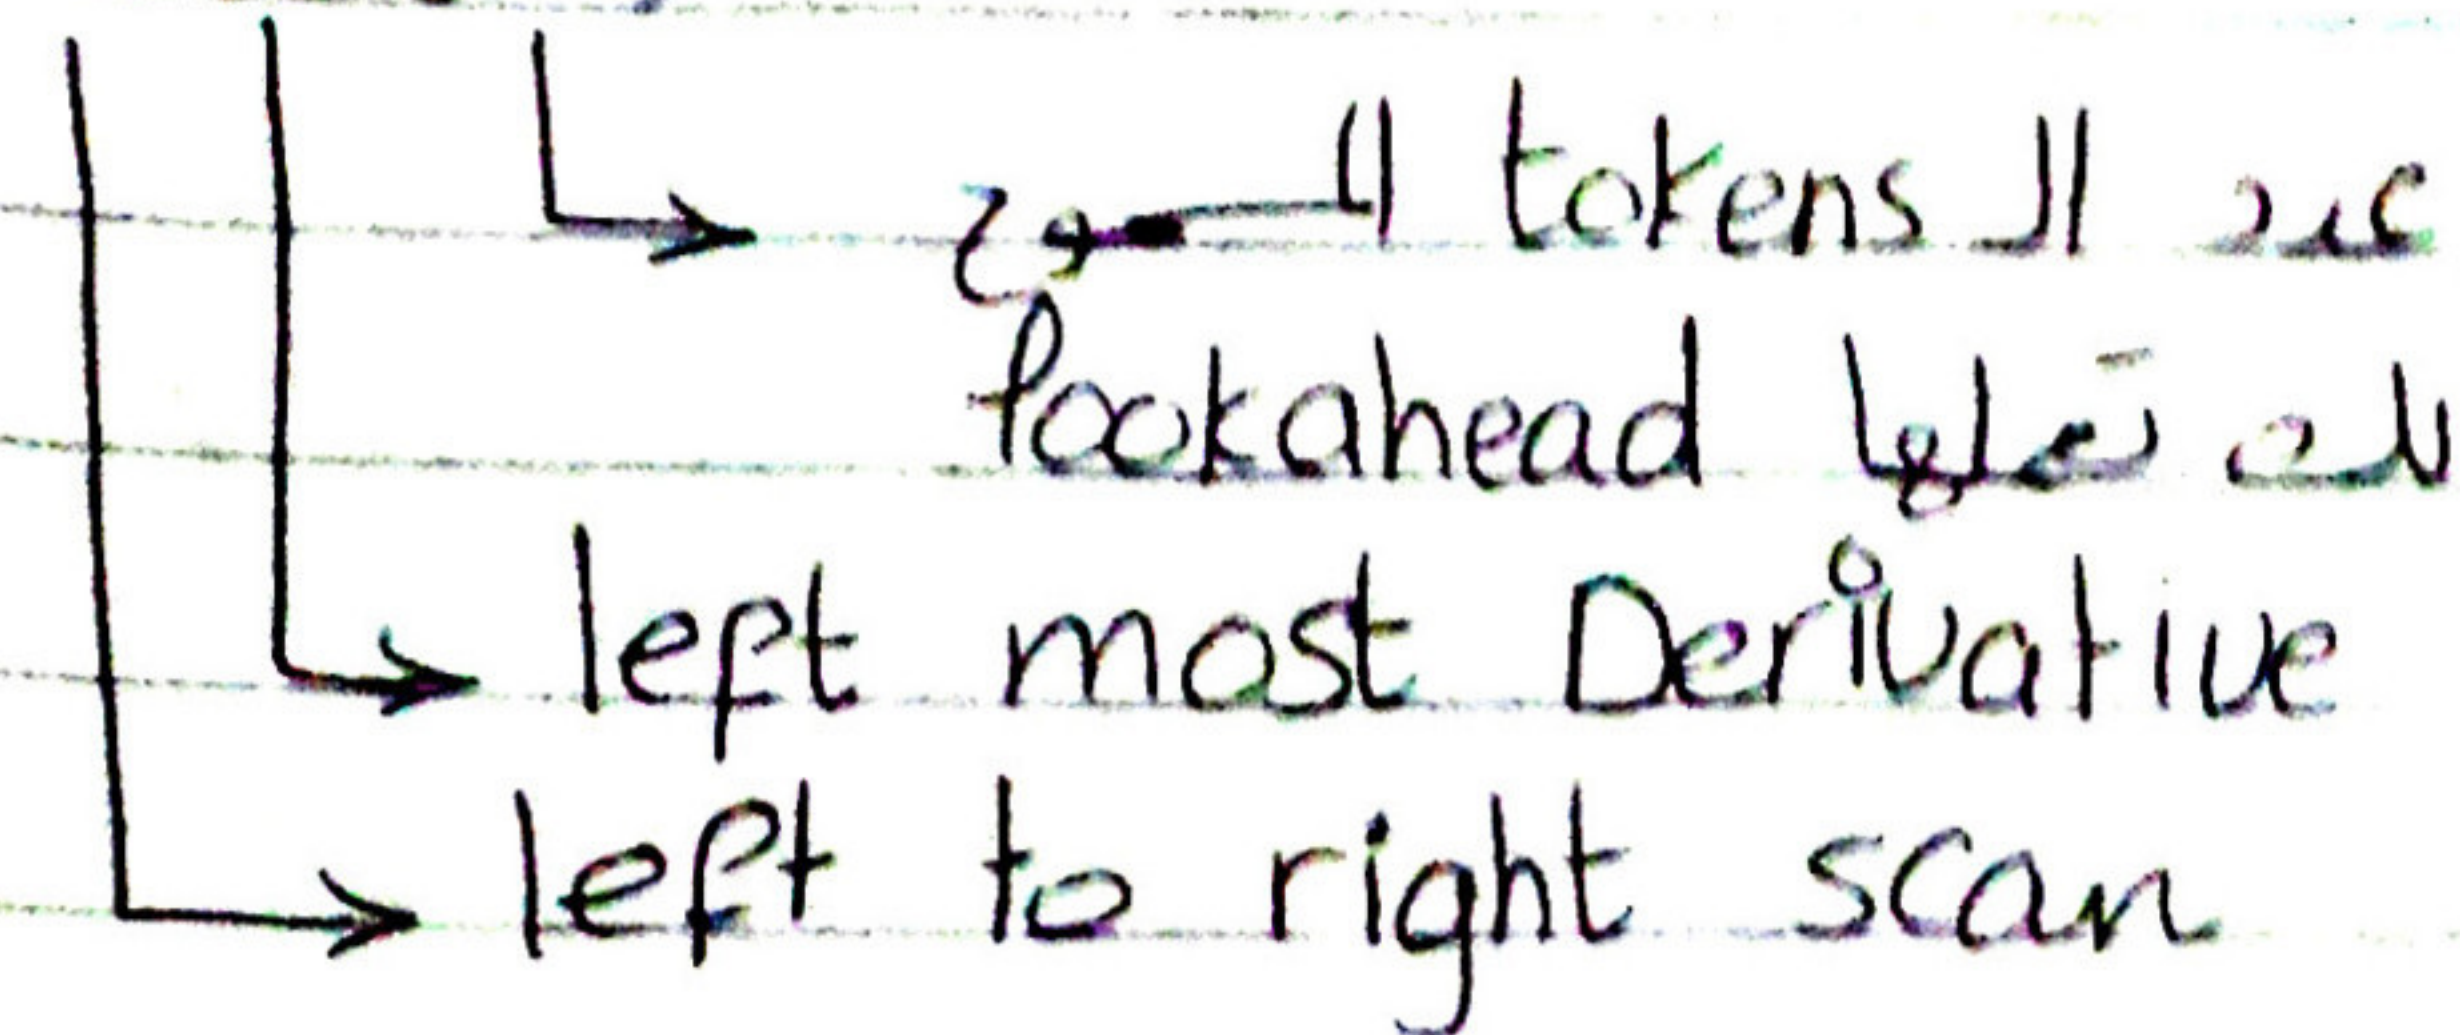 عدد ال tokens المسموح
لك تعملها lookahead
left most Derivative
left to right scan